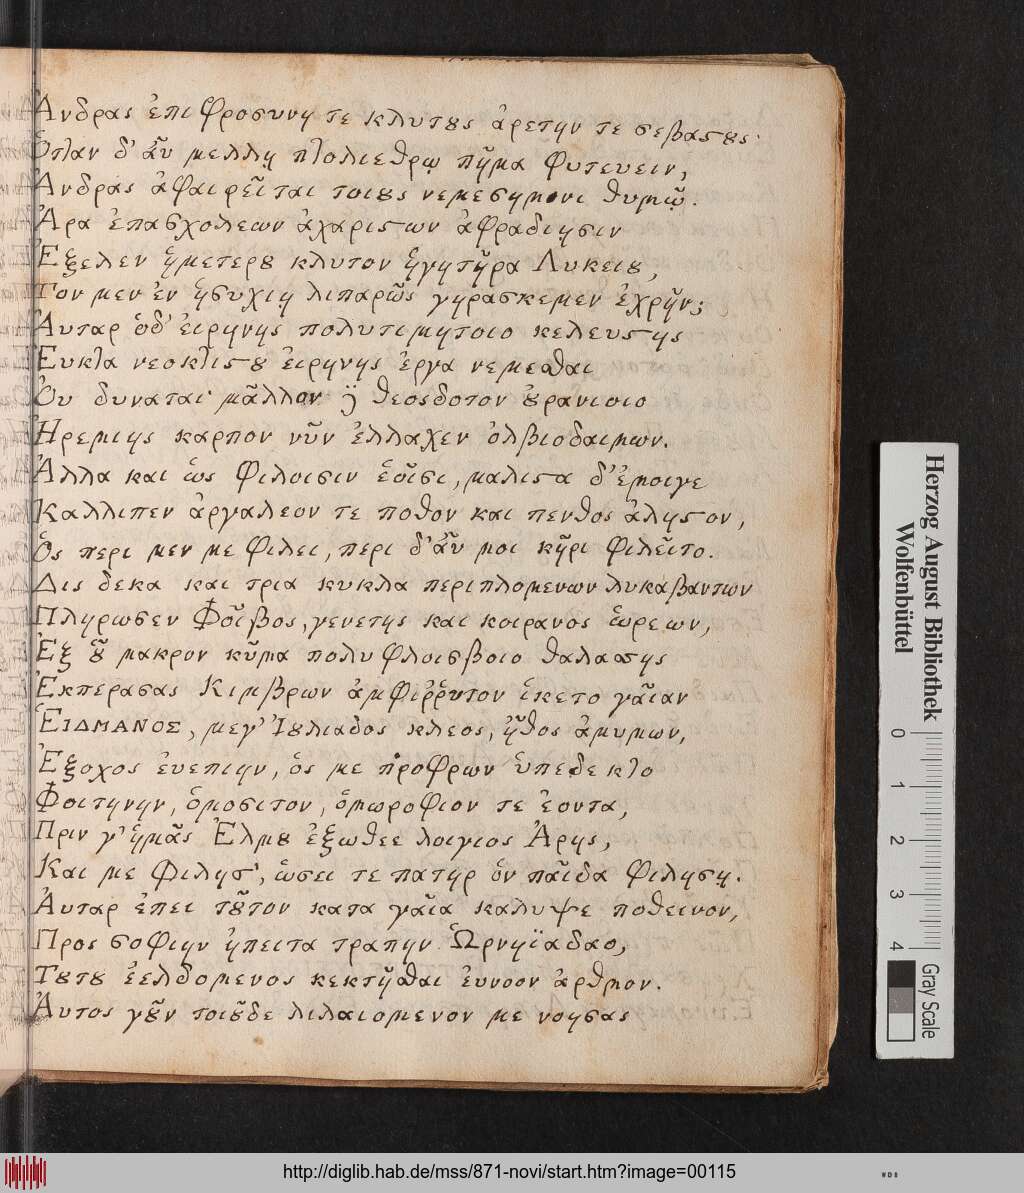 Ἀνδρας ἐπιφροσυνῃ τε κλυτους ἀρετην τε σεβαστους·
Ὁπταν δ' ἂν μελλῃ πτολιεθρῳ πῆμα φυτευειν,
Ἀνδρας ἀφαιρεῖται τοιους νεμεσημονι θυμῷ.
Ἀρα ἐπασχολεων ἀχαριστων ἀφραδιῃσιν
Ἐξελεν ἡμετερου κλυτον ἡγητῆρα Λυκειου,
Τον μεν ἐν ἡσυχιῃ λιπαρῶς γηρασκεμεν ἐχρῆν;
Ἀυταρ ὁδ' ἐιρηνης πολυτιμητοιο κελευστης
Ἐυκτα νεοκτιστου ἐιρηνης ἐργα νεμεσθαι
Ὀυ δυναται· μᾶλλον δὲ θεοσδοτον ουρανιοιο
Ἠρεμιης καρπον νῦν ἐλλαχεν ὀλβιοδαιμων.
Ἀλλα και ὡς φιλοισιν ἑοῖσι, μαλιστα δ' ἐμοιγε
Καλλιπεν ἀργαλεον τε ποθον και πενθος ἀληστον,
Ὁς περι μεν με φιλει, περι δ' ἂν μοι κῆρι φιλεῖτο.
Δις δεκα και τρια κυκλα περιπλομενων λυκαβαντων
Πληρωσεν Φοῖβος, γενετης και κοιρανος ὡρεων,
Ἐξ οὗ μακρον κῦμα πολυφλοισβοιο θαλασσης
Ἐκπερασας Κιμβρων ἀμφιῤῥυτον ἱκετο γαῖαν
ἙΙΔΜΑΝΟΣ, μεγ' Ἰουλιαδος κλεος, ἦθος ἀμυμων,
Ἐξοχος ἐυεπιην, ὁς με προφρων ὑπεδεκτο
Φοιτηνην, ὁμοσιτον, ὁμωροφιον τε ἐοντα,
Πριν γ' ἡμᾶς Ἑλμου ἐξωθεε λοιγιος Ἀρης,
Και με φιλησ', ὡσει τε πατηρ ὁν παῖδα φιλησῃ.
Ἀυταρ ἐπει τοῦτον κατα γαῖα καλυψε ποθεινον,
Προς σοφιην ἠπειτα τραπην Ὡρνηϊαδαο,
Τουτου ἐελδομενος κεκτῆσθαι ἐυνοον ἀρθμον.
Ἀυτος γοῦν τοιοῦδε λιλαιομενον με νοησας
Herzog August Bibliothek
Wolfenbüttel
0 1 2 3 4
Gray Scale
http://diglib.hab.de/mss/871-novi/start.htm?image=00115